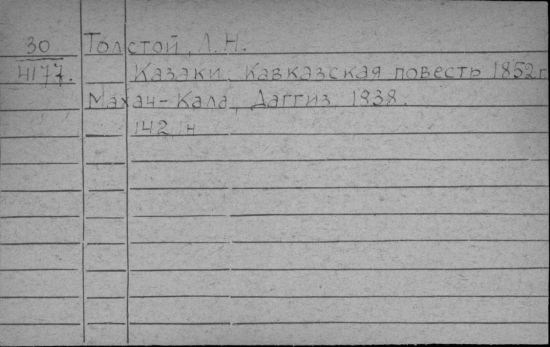 30 Толстой, Л. Н.
4177. Казаки. Кавказская повесть 1852 г
Махач-Кала, Даггиз 1938.
142 н